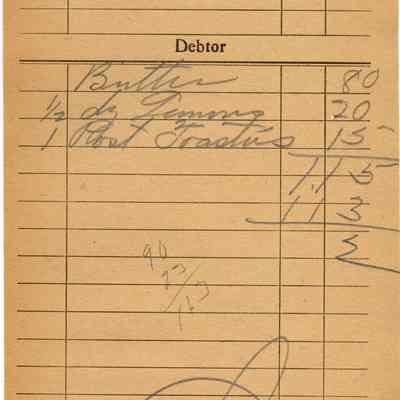 Debtor
Butter 80
1/2 dz Lemons 20
1 Post Toasties 15
1,15
113
90
23/
113